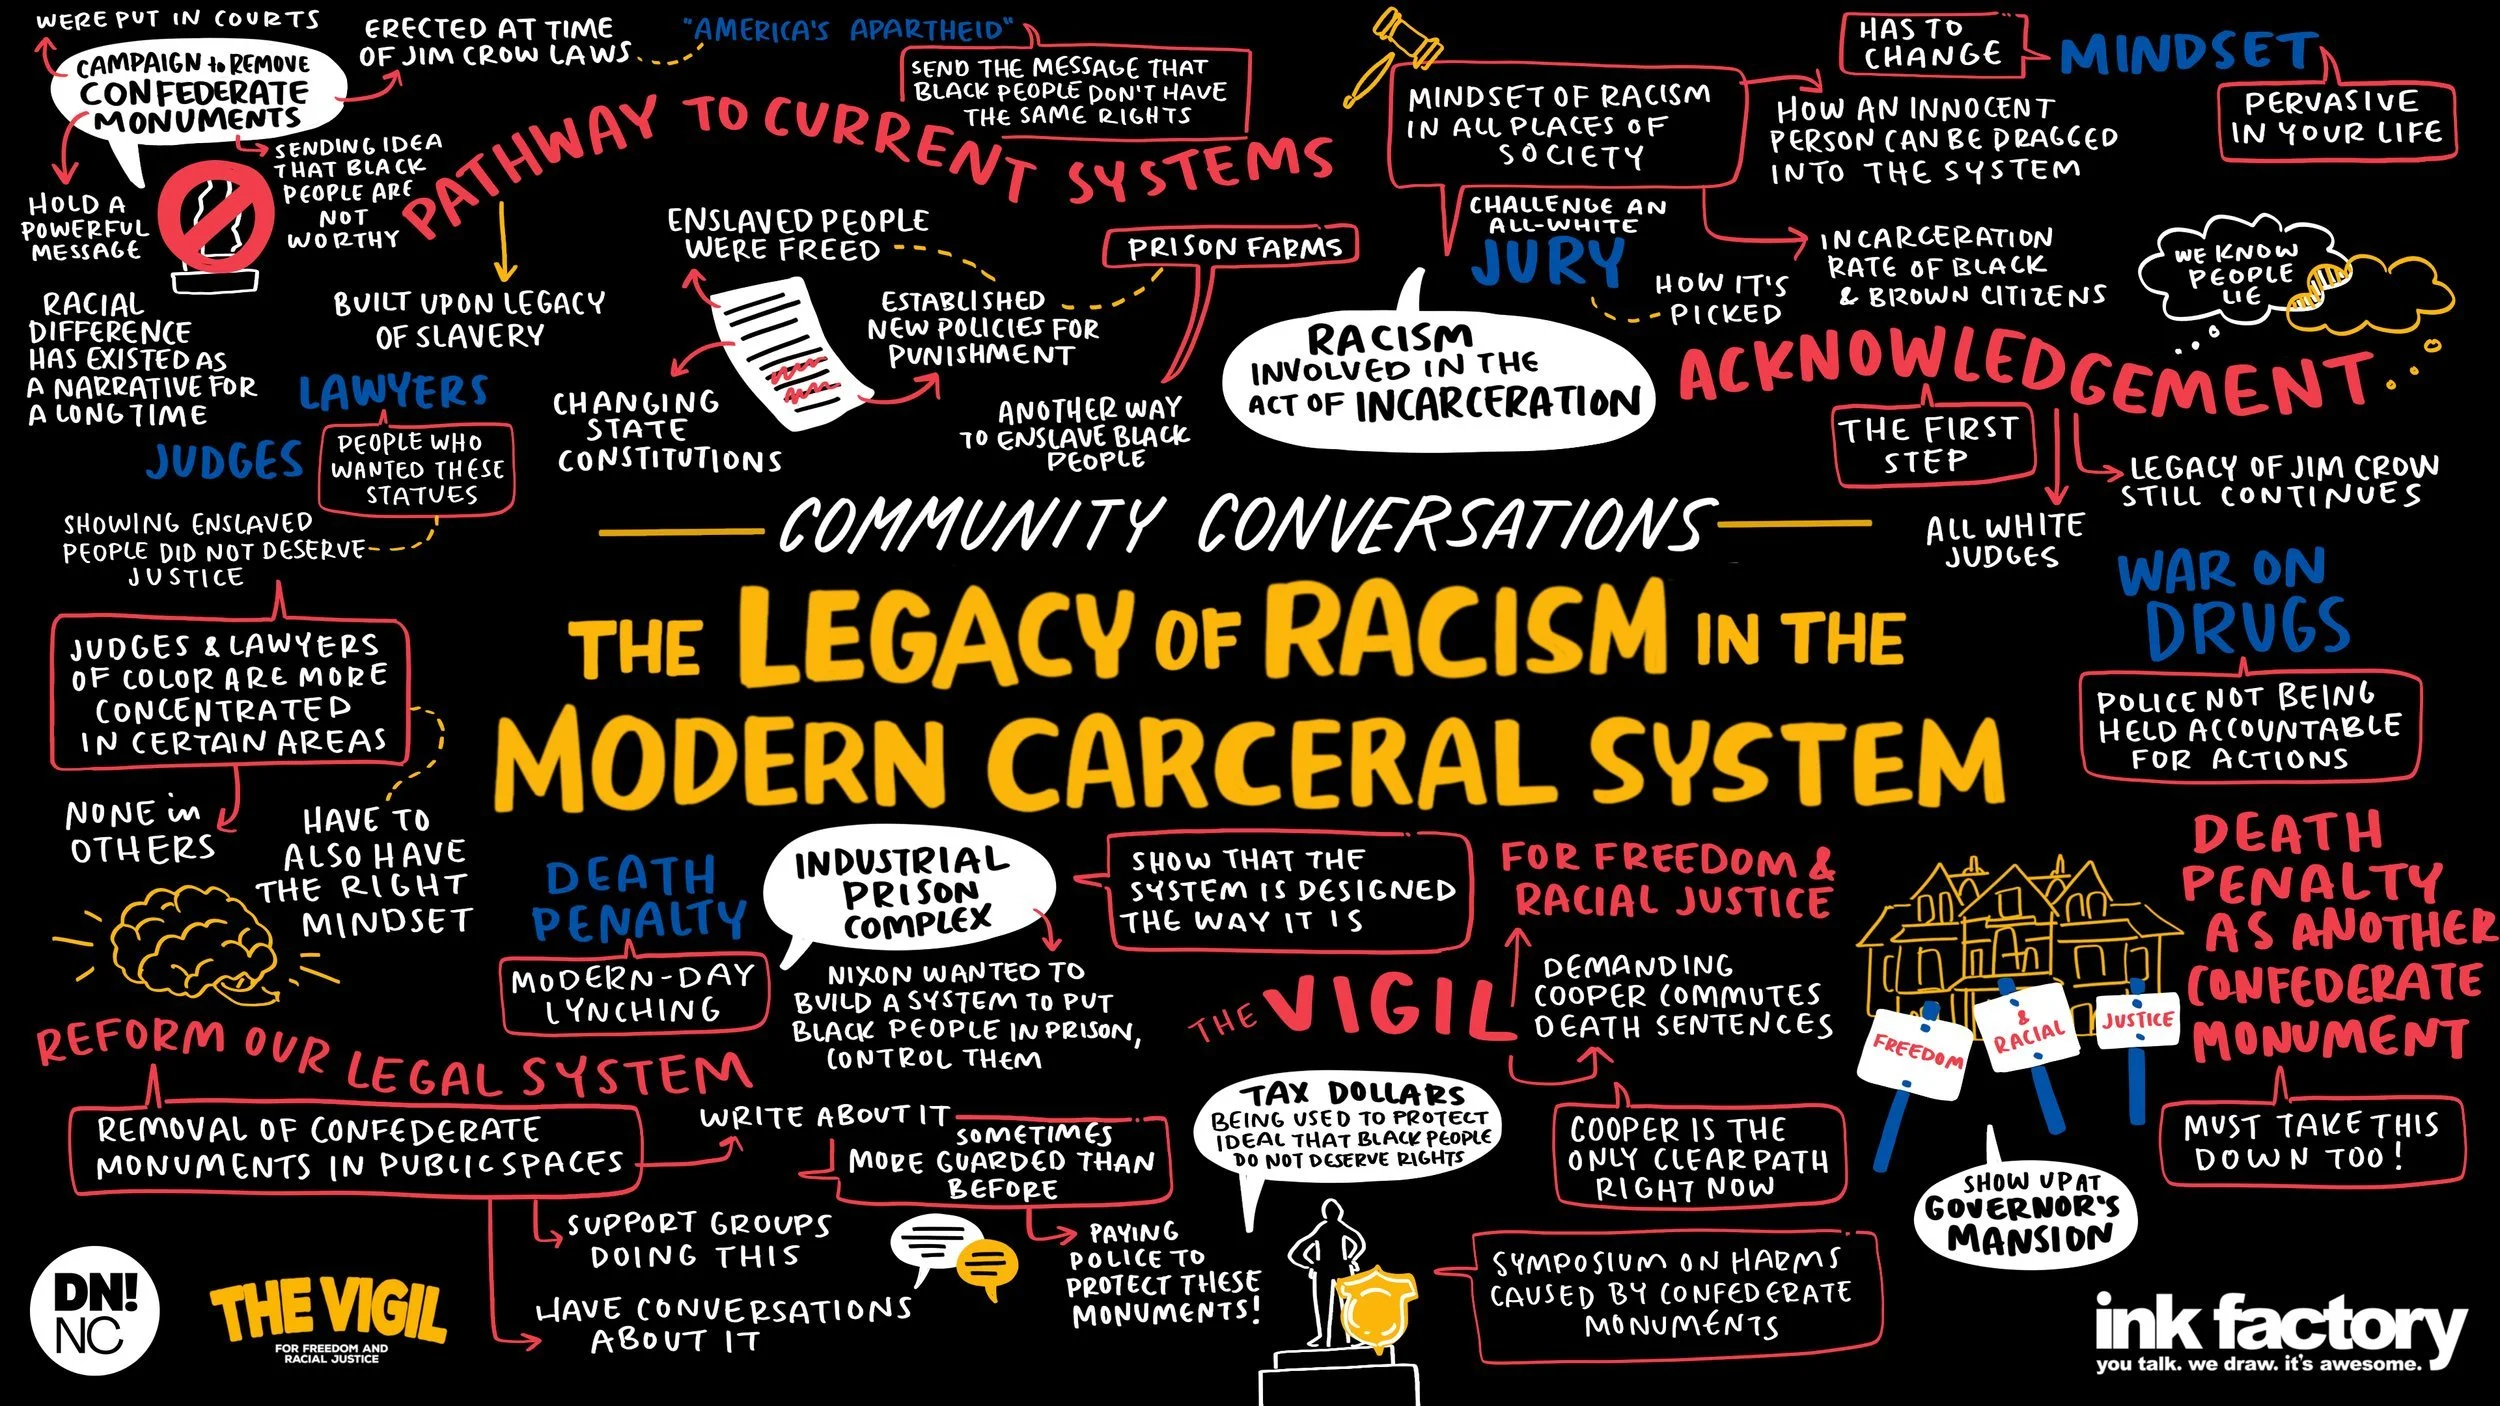 WERE PUT IN COURTS
CAMPAIGN to REMOVE
CONFEDERATE
MONUMENTS
ERECTED AT TIME
OF JIM CROW LAWS
"AMERICA'S APARTHEID"
SEND THE MESSAGE THAT
BLACK PEOPLE DON'T HAVE
THE SAME RIGHTS
HOLD A
POWERFUL
MESSAGE
SENDING IDEA
THAT BLACK
PEOPLE ARE
NOT
WORTHY
PATHWAY TO CURRENT SYSTEMS
BUILT UPON LEGACY
OF SLAVERY
RACIAL
DIFFERENCE
HAS EXISTED AS
A NARRATIVE FOR
A LONG TIME
LAWYERS
JUDGES
PEOPLE WHO
WANTED THESE
STATUES
SHOWING ENSLAVED
PEOPLE DID NOT DESERVE
JUSTICE
JUDGES & LAWYERS
OF COLOR ARE MORE
CONCENTRATED
IN CERTAIN AREAS
NONE in
OTHERS
HAVE TO
ALSO HAVE
THE RIGHT
MINDSET
ENSLAVED PEOPLE
WERE FREED
ESTABLISHED
NEW POLICIES FOR
PUNISHMENT
CHANGING
STATE
CONSTITUTIONS
PRISON FARMS
ANOTHER WAY
TO ENSLAVE BLACK
PEOPLE
MINDSET OF RACISM
IN ALL PLACES OF
SOCIETY
HOW AN INNOCENT
PERSON CAN BE DRAGGED
INTO THE SYSTEM
HAS TO
CHANGE
MINDSET
PERVASIVE
IN YOUR LIFE
CHALLENGE AN
ALL-WHITE
JURY
HOW IT'S
PICKED
INCARCERATION
RATE OF BLACK
& BROWN CITIZENS
RACISM
INVOLVED IN THE
ACT OF INCARCERATION
WE KNOW
PEOPLE
LIE
ACKNOWLEDGEMENT
THE FIRST
STEP
LEGACY OF JIM CROW
STILL CONTINUES
ALL WHITE
JUDGES
COMMUNITY CONVERSATIONS
THE LEGACY OF RACISM IN THE
MODERN CARCERAL SYSTEM
WAR ON
DRUGS
POLICE NOT BEING
HELD ACCOUNTABLE
FOR ACTIONS
DEATH
PENALTY
MODERN-DAY
LYNCHING
INDUSTRIAL
PRISON
COMPLEX
NIXON WANTED TO
BUILD A SYSTEM TO PUT
BLACK PEOPLE IN PRISON,
CONTROL THEM
SHOW THAT THE
SYSTEM IS DESIGNED
THE WAY IT IS
FOR FREEDOM &
RACIAL JUSTICE
THE VIGIL
DEMANDING
COOPER COMMUTES
DEATH SENTENCES
COOPER IS THE
ONLY CLEAR PATH
RIGHT NOW
FREEDOM
& RACIAL
JUSTICE
SHOW UP AT
GOVERNOR'S
MANSION
DEATH
PENALTY
AS ANOTHER
CONFEDERATE
MONUMENT
MUST TAKE THIS
DOWN TOO!
REFORM OUR LEGAL SYSTEM
REMOVAL OF CONFEDERATE
MONUMENTS IN PUBLIC SPACES
WRITE ABOUT IT
SOMETIMES
MORE GUARDED THAN
BEFORE
SUPPORT GROUPS
DOING THIS
HAVE CONVERSATIONS
ABOUT IT
PAYING
POLICE TO
PROTECT THESE
MONUMENTS!
TAX DOLLARS
BEING USED TO PROTECT
IDEAL THAT BLACK PEOPLE
DO NOT DESERVE RIGHTS
SYMPOSIUM ON HARMS
CAUSED BY CONFEDERATE
MONUMENTS
DN!
NC
THE VIGIL
FOR FREEDOM AND
RACIAL JUSTICE
ink factory
you talk. we draw. it's awesome.